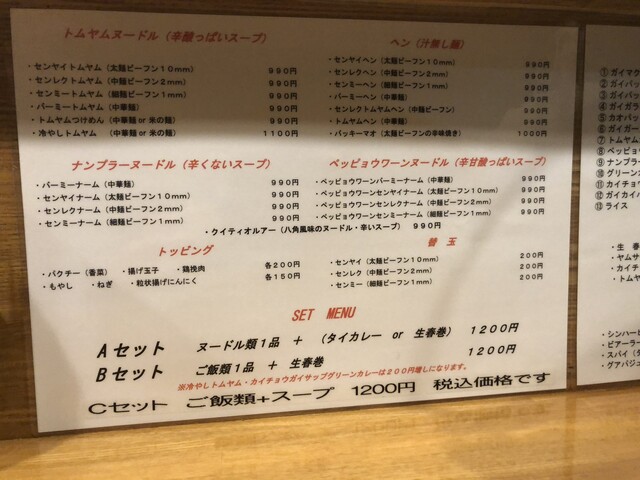 トムヤムヌードル（辛酸っぱいスープ）
・センヤイトムヤム（太麺ビーフン１０ｍｍ） ９９０円
・センレクトムヤム（中麺ビーフン２ｍｍ） ９９０円
・センミートムヤム（細麺ビーフン１ｍｍ） ９９０円
・バーミートムヤム（中華麺） ９９０円
・トムヤムつけめん（中華麺 or 米の麺） ９９０円
・冷やしトムヤム （中華麺 or 米の麺） １１００円
ヘン（汁無し麺）
・センヤイヘン（太麺ビーフン１０ｍｍ） ９９０円
・センレクヘン（中麺ビーフン２ｍｍ） ９９０円
・センミーヘン（細麺ビーフン１ｍｍ） ９９０円
・バーミーヘン（中華麺） ９９０円
・センレクトムヤムヘン（中麺ビーフン） ９９０円
・トムヤムヘン（中華麺） ９９０円
・パッキーマオ（太麺ビーフンの辛味焼き） １０００円
ナンプラーヌードル（辛くないスープ）
・バーミーナーム（中華麺） ９９０円
・センヤイナーム（太麺ビーフン１０ｍｍ） ９９０円
・センレクナーム（中麺ビーフン２ｍｍ） ９９０円
・センミーナーム（細麺ビーフン１ｍｍ） ９９０円
ペッピョウワーンヌードル（辛甘酸っぱいスープ）
・ペッピョウワーンバーミーナーム（中華麺） ９９０円
・ペッピョウワーンセンヤイナーム（太麺ビーフン１０ｍｍ） ９９０円
・ペッピョウワーンセンレクナーム（中麺ビーフン２ｍｍ） ９９０円
・ペッピョウワーンセンミーナーム（細麺ビーフン１ｍｍ） ９９０円
・クイティオルアー（八角風味のヌードル・辛いスープ） ９９０円
トッピング
・パクチー（香菜） ・揚げ玉子 ・鶏挽肉 各２００円
・もやし ・ねぎ ・粒状揚げにんにく 各１５０円
替 玉
・センヤイ（太麺ビーフン１０ｍｍ） ２００円
・センレク（中麺ビーフン２ｍｍ） ２００円
・センミー（細麺ビーフン１ｍｍ） ２００円
SET MENU
Ａセット ヌードル類１品 ＋ （タイカレー or 生春巻） １２００円
Ｂセット ご飯類１品 ＋ 生春巻 １２００円
※冷やしトムヤム・カイチョウガイサップグリーンカレーは２００円増しになります。
Ｃセット ご飯類+スープ 1200円 税込価格です
① ガイマケ
② ガイパッ
③ ガイパッ
④ ガイガラ
⑤ カオパッ
⑥ ガイガー
⑦ トムヤム
⑧ ペッピョ
⑨ ナンプラ
⑩ グリーン
⑪ カイチョウ
⑫ ガイカイ
⑬ ライス
・生春
・ヤムサ
・カイチ
・トムヤ
・シンハー
・ビアーラ
・スパイ（
・グアバジュ